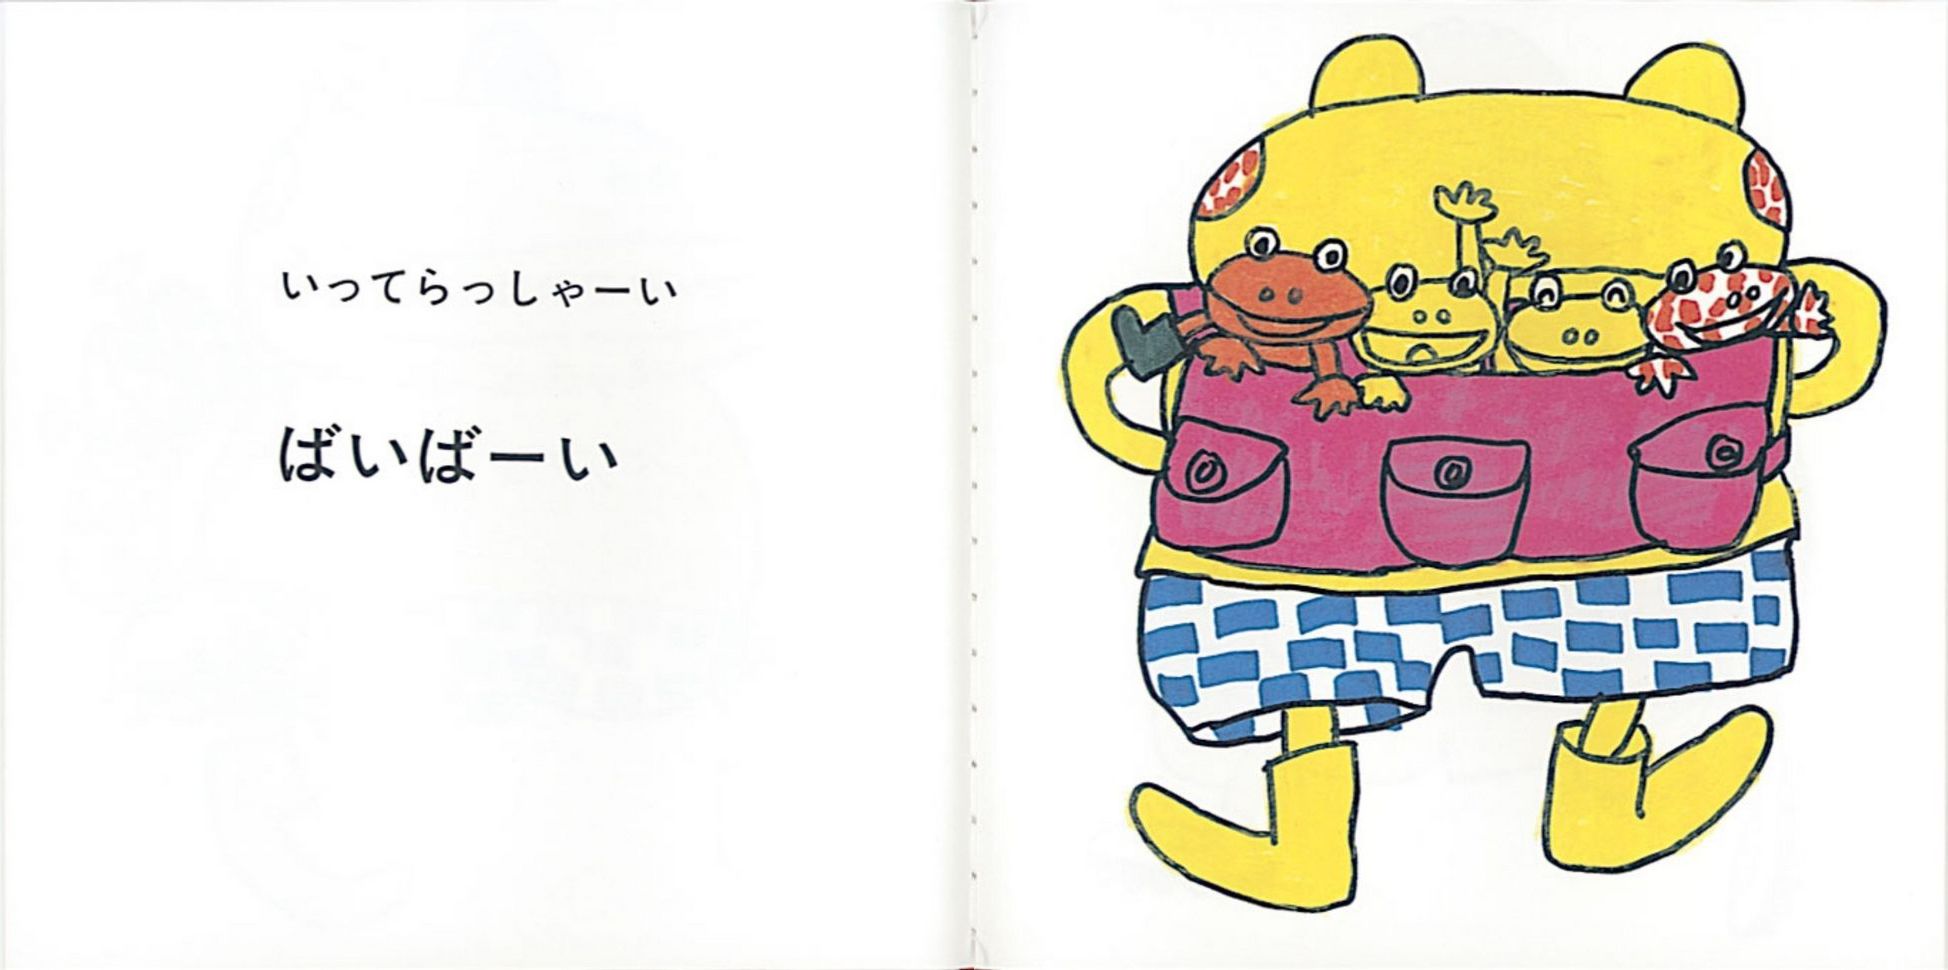 いってらっしゃーい
ばいばーい